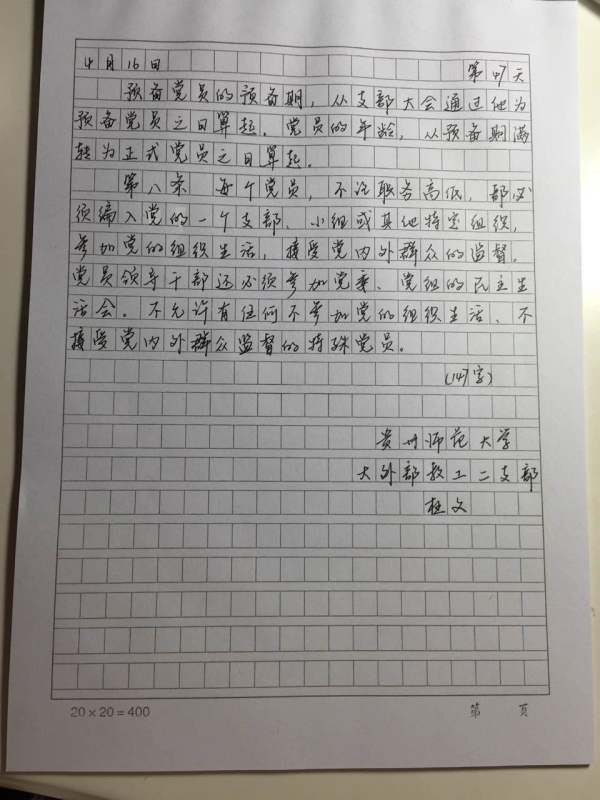 4月16日 第47天
预备党员的预备期，从支部大会通过他为
预备党员之日算起。党员的年龄，从预备期满
转为正式党员之日算起。
第八条 每个党员，不论职务高低，都必
须编入党的一个支部、小组或其他特定组织，
参加党的组织生活，接受党内外群众的监督。
党员领导干部还必须参加党委、党组的民主生
活会。不允许有任何不参加党的组织生活、不
接受党内外群众监督的特殊党员。
(147字)
贵州师范大学
大外部教工二支部
杜文
20×20=400 第 页